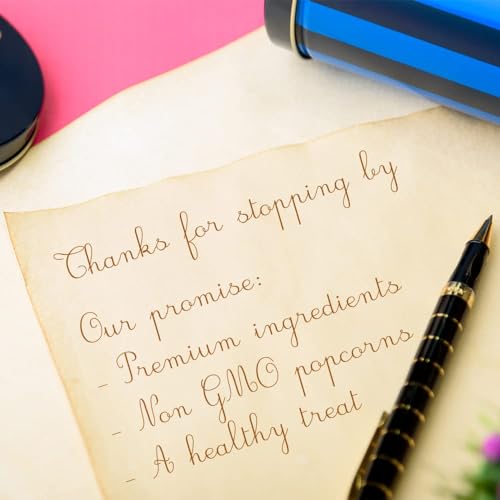 Thanks for stopping by
Our promise:
- Premium ingredients
- Non GMO popcorns
- A healthy treat